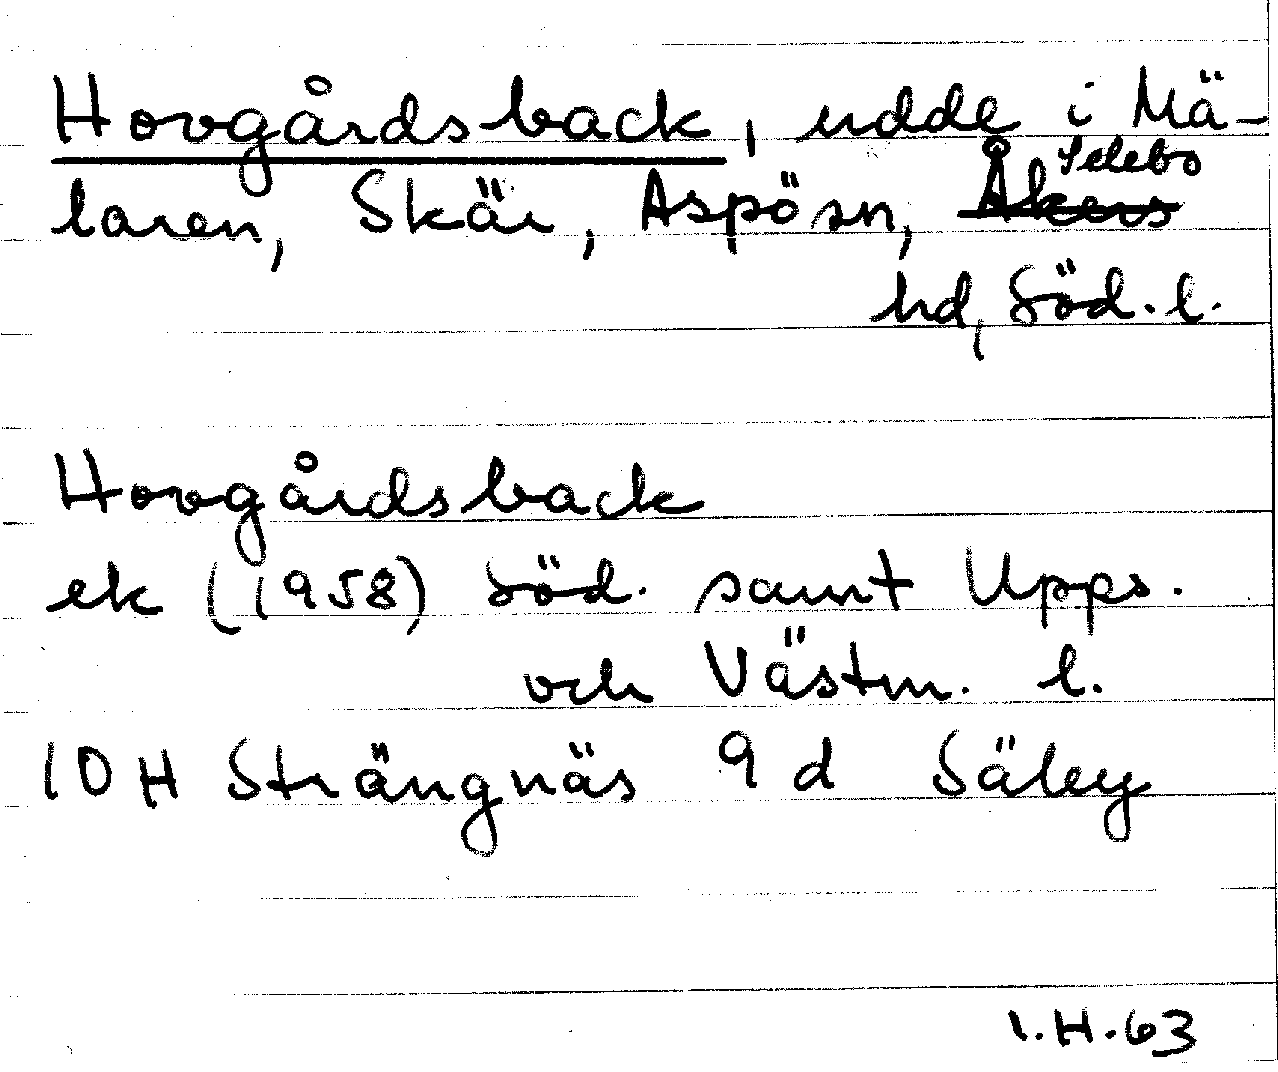 Hovgårdsback, udde i Mä-
laren, Skär, Aspö sn, Åkers Selebo
hd, Söd. l.
Hovgårdsback
ek (1958) Söd. samt Upps.
och Västm. l.
10 H Strängnäs 9 d Säley
I.H.63